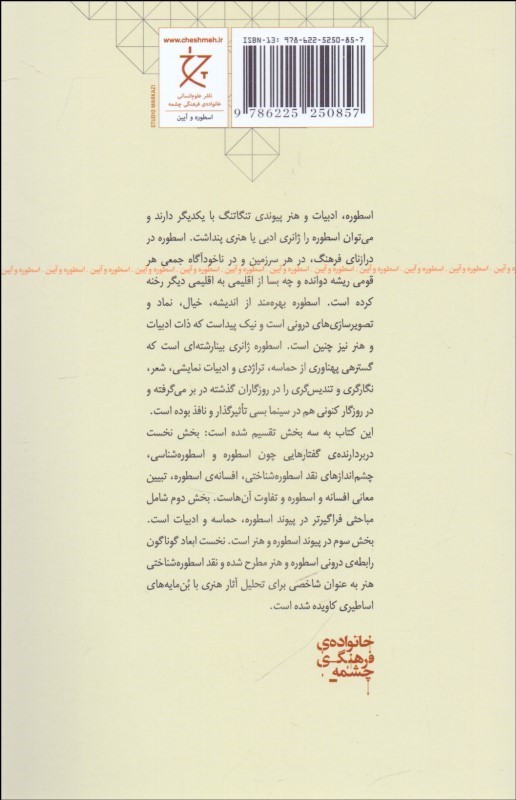 www.cheshmeh.ir
نشر علوم‌انسانی
خانواده‌ی فرهنگی چشمه
اسطوره و آیین
STUDIO MARKAZI
ISBN-13: 978-622-5250-85-7
9 786225 250857
اسطوره، ادبیات و هنر پیوندی تنگاتنگ با یکدیگر دارند و
می‌توان اسطوره را ژانری ادبی یا هنری پنداشت. اسطوره در
درازنای فرهنگ، در هر سرزمین و در ناخودآگاه جمعی هر
اسطوره و آیین . اسطوره و آیین . اسطوره و آیین . اسطوره و آیین . اسطوره و آیین . اسطوره و آیین . اسطوره و آیین . اسطوره و آیین . اسطوره و آیین
قومی ریشه دوانده و چه بسا از اقلیمی به اقلیمی دیگر رخنه
کرده است. اسطوره بهره‌مند از اندیشه، خیال، نماد و
تصویرسازی‌های درونی است و نیک پیداست که ذات ادبیات
و هنر نیز چنین است. اسطوره ژانری بینارشته‌ای است که
گستره‍ی پهناوری از حماسه، تراژدی و ادبیات نمایشی، شعر،
نگارگری و تندیس‌گری را در روزگاران گذشته در بر می‌گرفته و
در روزگار کنونی هم در سینما بسی تأثیرگذار و نافذ بوده است.
این کتاب به سه بخش تقسیم شده است: بخش نخست
دربردارنده‌ی گفتارهایی چون اسطوره و اسطوره‌شناسی،
چشم‌اندازهای نقد اسطوره‌شناختی، افسانه‌ی اسطوره، تبیین
معانی افسانه و اسطوره و تفاوت آن‌هاست. بخش دوم شامل
مباحثی فراگیرتر در پیوند اسطوره، حماسه و ادبیات است.
بخش سوم در پیوند اسطوره و هنر است. نخست ابعاد گوناگون
رابطه‌ی درونی اسطوره و هنر مطرح شده و نقد اسطوره‌شناختی
هنر به عنوان شاخصی برای تحلیل آثار هنری با بُن‌مایه‌های
اساطیری کاویده شده است.
خانواده‌ی
فرهنگی
چشمه